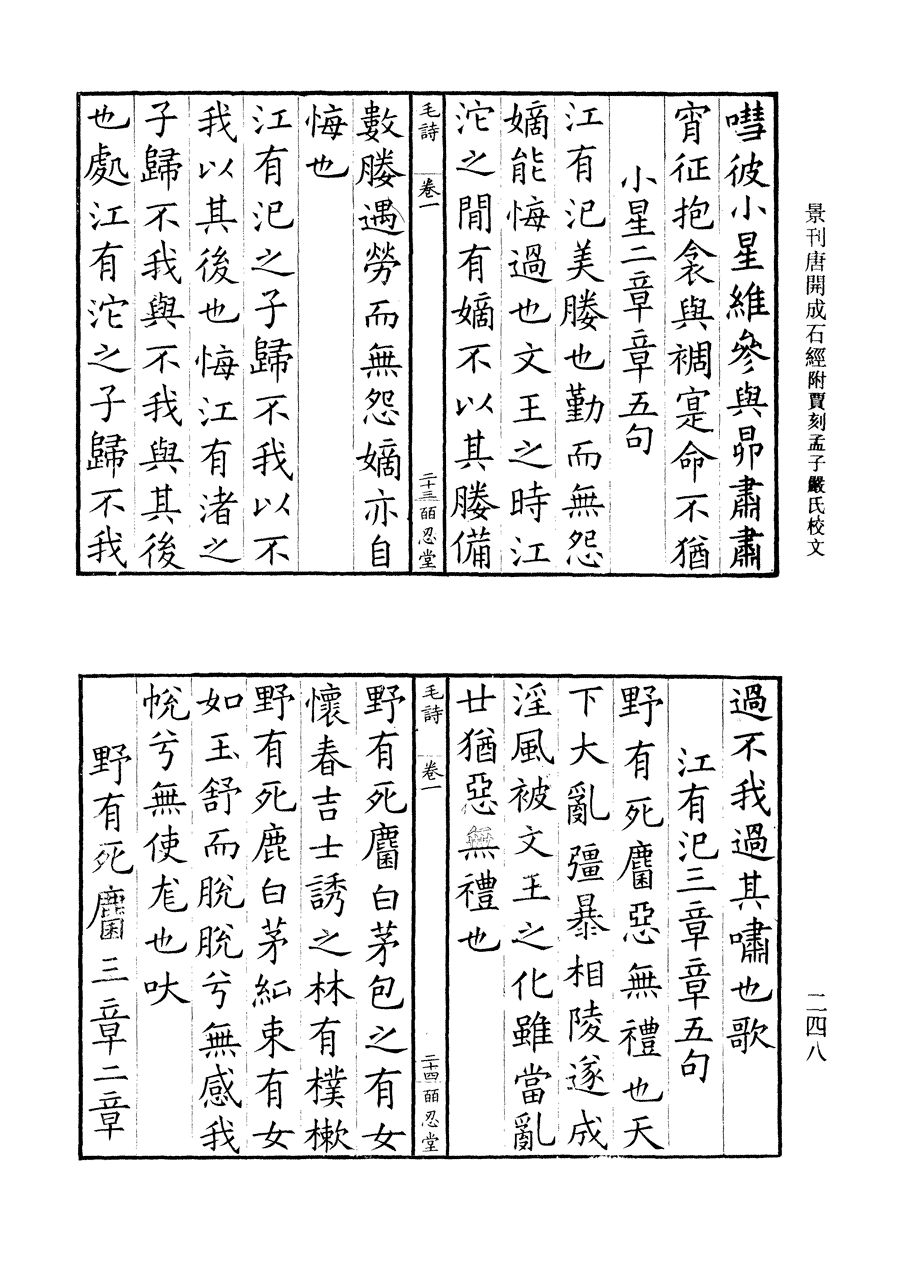 景刊唐開成石經附賈刻孟子嚴氏校文
二四八
嘒彼小星維參與昴肅肅
宵征抱衾與裯寔命不猶
小星二章章五句
江有汜美媵也勤而無怨
嫡能悔過也文王之時江
沱之閒有嫡不以其媵備
毛詩 卷一 二十三 皕忍堂
數媵遇勞而無怨嫡亦自
悔也
江有汜之子歸不我以不
我以其後也悔江有渚之
子歸不我與不我與其後
也處江有沱之子歸不我
過不我過其嘯也歌
江有汜三章章五句
野有死麕惡無禮也天
下大亂彊暴相陵遂成
淫風被文王之化雖當亂
廿猶惡無禮也
毛詩 卷一 二十四 皕忍堂
野有死麕白茅包之有女
懷春吉士誘之林有樸樕
野有死鹿白茅紃束有女
如玉舒而脫脫兮無感我
帨兮無使尨也吠
野有死麕三章二章